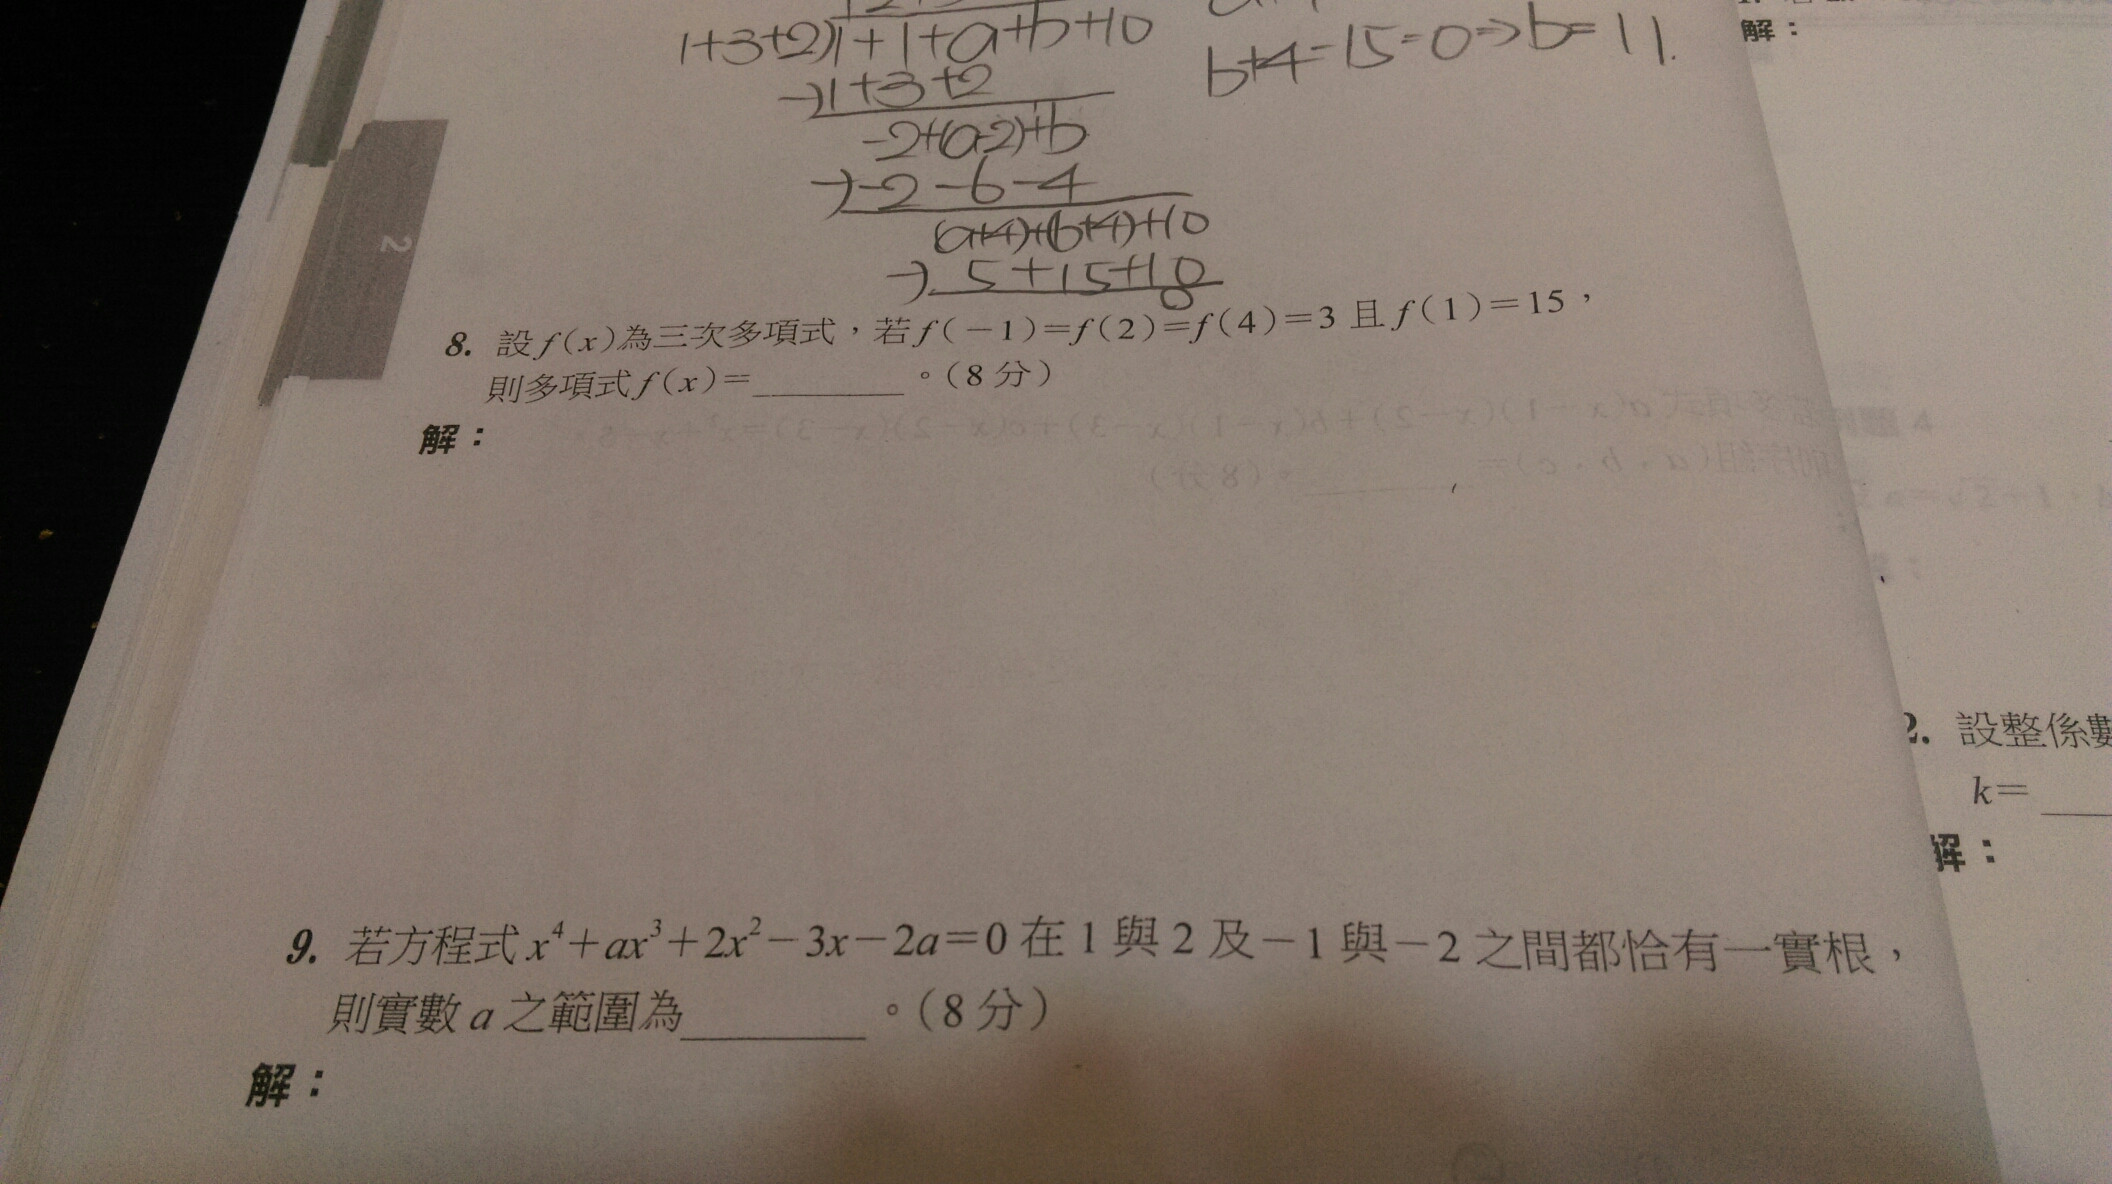 1+3+2)1+1+a+b+10
-)1+3+2
-2+(a-2)+b
-)-2-6-4
(a+4)+(b+4)+10
-) 5+15+10
0
b+4-15=0⇒b=11.
2
8. 設f(x)為三次多項式,若f(-1)=f(2)=f(4)=3且f(1)=15,
則多項式f(x)=________。(8分)
解:
9. 若方程式x⁴+ax³+2x²-3x-2a=0在1與2及-1與-2之間都恰有一實根,
則實數a之範圍為________。(8分)
解:
解:
2. 設整係數
k=____
解: